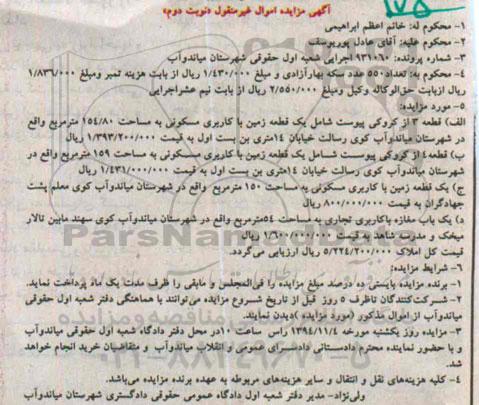 ۱۷۵
آگهی مزایده اموال غیرمنقول «نوبت دوم»
۱- محکوم له: خانم اعظم ابراهیمی
۲- محکوم علیه: آقای عادل پوریوسف
۳- شماره پرونده: ۹۳۱۰۶۰ اجرایی شعبه اول حقوقی شهرستان میاندوآب
۴- محکوم به: تعداد ۵۵۰ عدد سکه بهارآزادی و مبلغ ۱/۴۳۰/۰۰۰ ریال از بابت هزینه تمبر ومبلغ ۱/۸۳۶/۰۰۰
ریال ازبابت حق‌الوکاله وکیل ومبلغ ۲/۵۵۰/۰۰۰ ریال از بابت نیم عشراجرایی
۵- مورد مزایده:
الف) قطعه ۳ از کروکی پیوست شامل یک قطعه زمین با کاربری مسکونی به مساحت ۱۵۴/۸۰ مترمربع واقع
در شهرستان میاندوآب کوی رسالت خیابان ۱۴متری بن بست اول به قیمت ۱/۳۹۳/۲۰۰/۰۰۰ ریال
ب) قطعه۴ از کروکی پیوست شامل یک قطعه زمین با کاربری مسکونی به مساحت ۱۵۹ مترمربع واقع در
شهرستان میاندوآب کوی رسالت خیابان ۱۴متری بن بست اول به قیمت ۱/۴۳۱/۰۰۰/۰۰۰ ریال
ج) یک قطعه زمین با کاربری مسکونی به مساحت ۱۵۰ مترمربع واقع در شهرستان میاندوآب کوی معلم پشت
جهادگران به قیمت ۸۰۰/۰۰۰/۰۰۰ ریال
د) یک باب مغازه باکاربری تجاری به مساحت ۵۴مترمربع واقع در شهرستان میاندوآب کوی سهند مابین تالار
میخک و مدرسه شاهد به قیمت ۱/۶۰۰/۰۰۰/۰۰۰ ریال
قیمت کل املاک ۵/۲۲۴/۲۰۰/۰۰۰ ریال ارزیابی می‌گردد.
۶- شرایط مزایده:
۱- برنده مزایده بایستی ده درصد مبلغ مزایده را فی‌المجلس و مابقی را ظرف مدت یک ماه پرداخت نماید.
۲- شرکت‌کنندگان تاظرف ۵ روز قبل از تاریخ شروع مزایده می‌توانند با هماهنگی دفتر شعبه اول حقوقی
میاندوآب از اموال مذکور (مورد مزایده) دیدن نمایند.
۳- مزایده روز یکشنبه مورخه ۱۳۹۴/۱۱/۴ راس ساعت ۱۰در محل دفتر دادگاه شعبه اول حقوقی میاندوآب
و با حضور نماینده محترم دادستانی دادسرای عمومی و انقلاب میاندوآب و متقاضیان خرید انجام خواهد
شد.
۴- کلیه هزینه‌های نقل و انتقال و سایر هزینه‌های مربوطه به عهده برنده مزایده می‌باشد.
ولی‌نژاد- مدیر دفتر شعبه اول دادگاه عمومی حقوقی دادگستری شهرستان میاندوآب